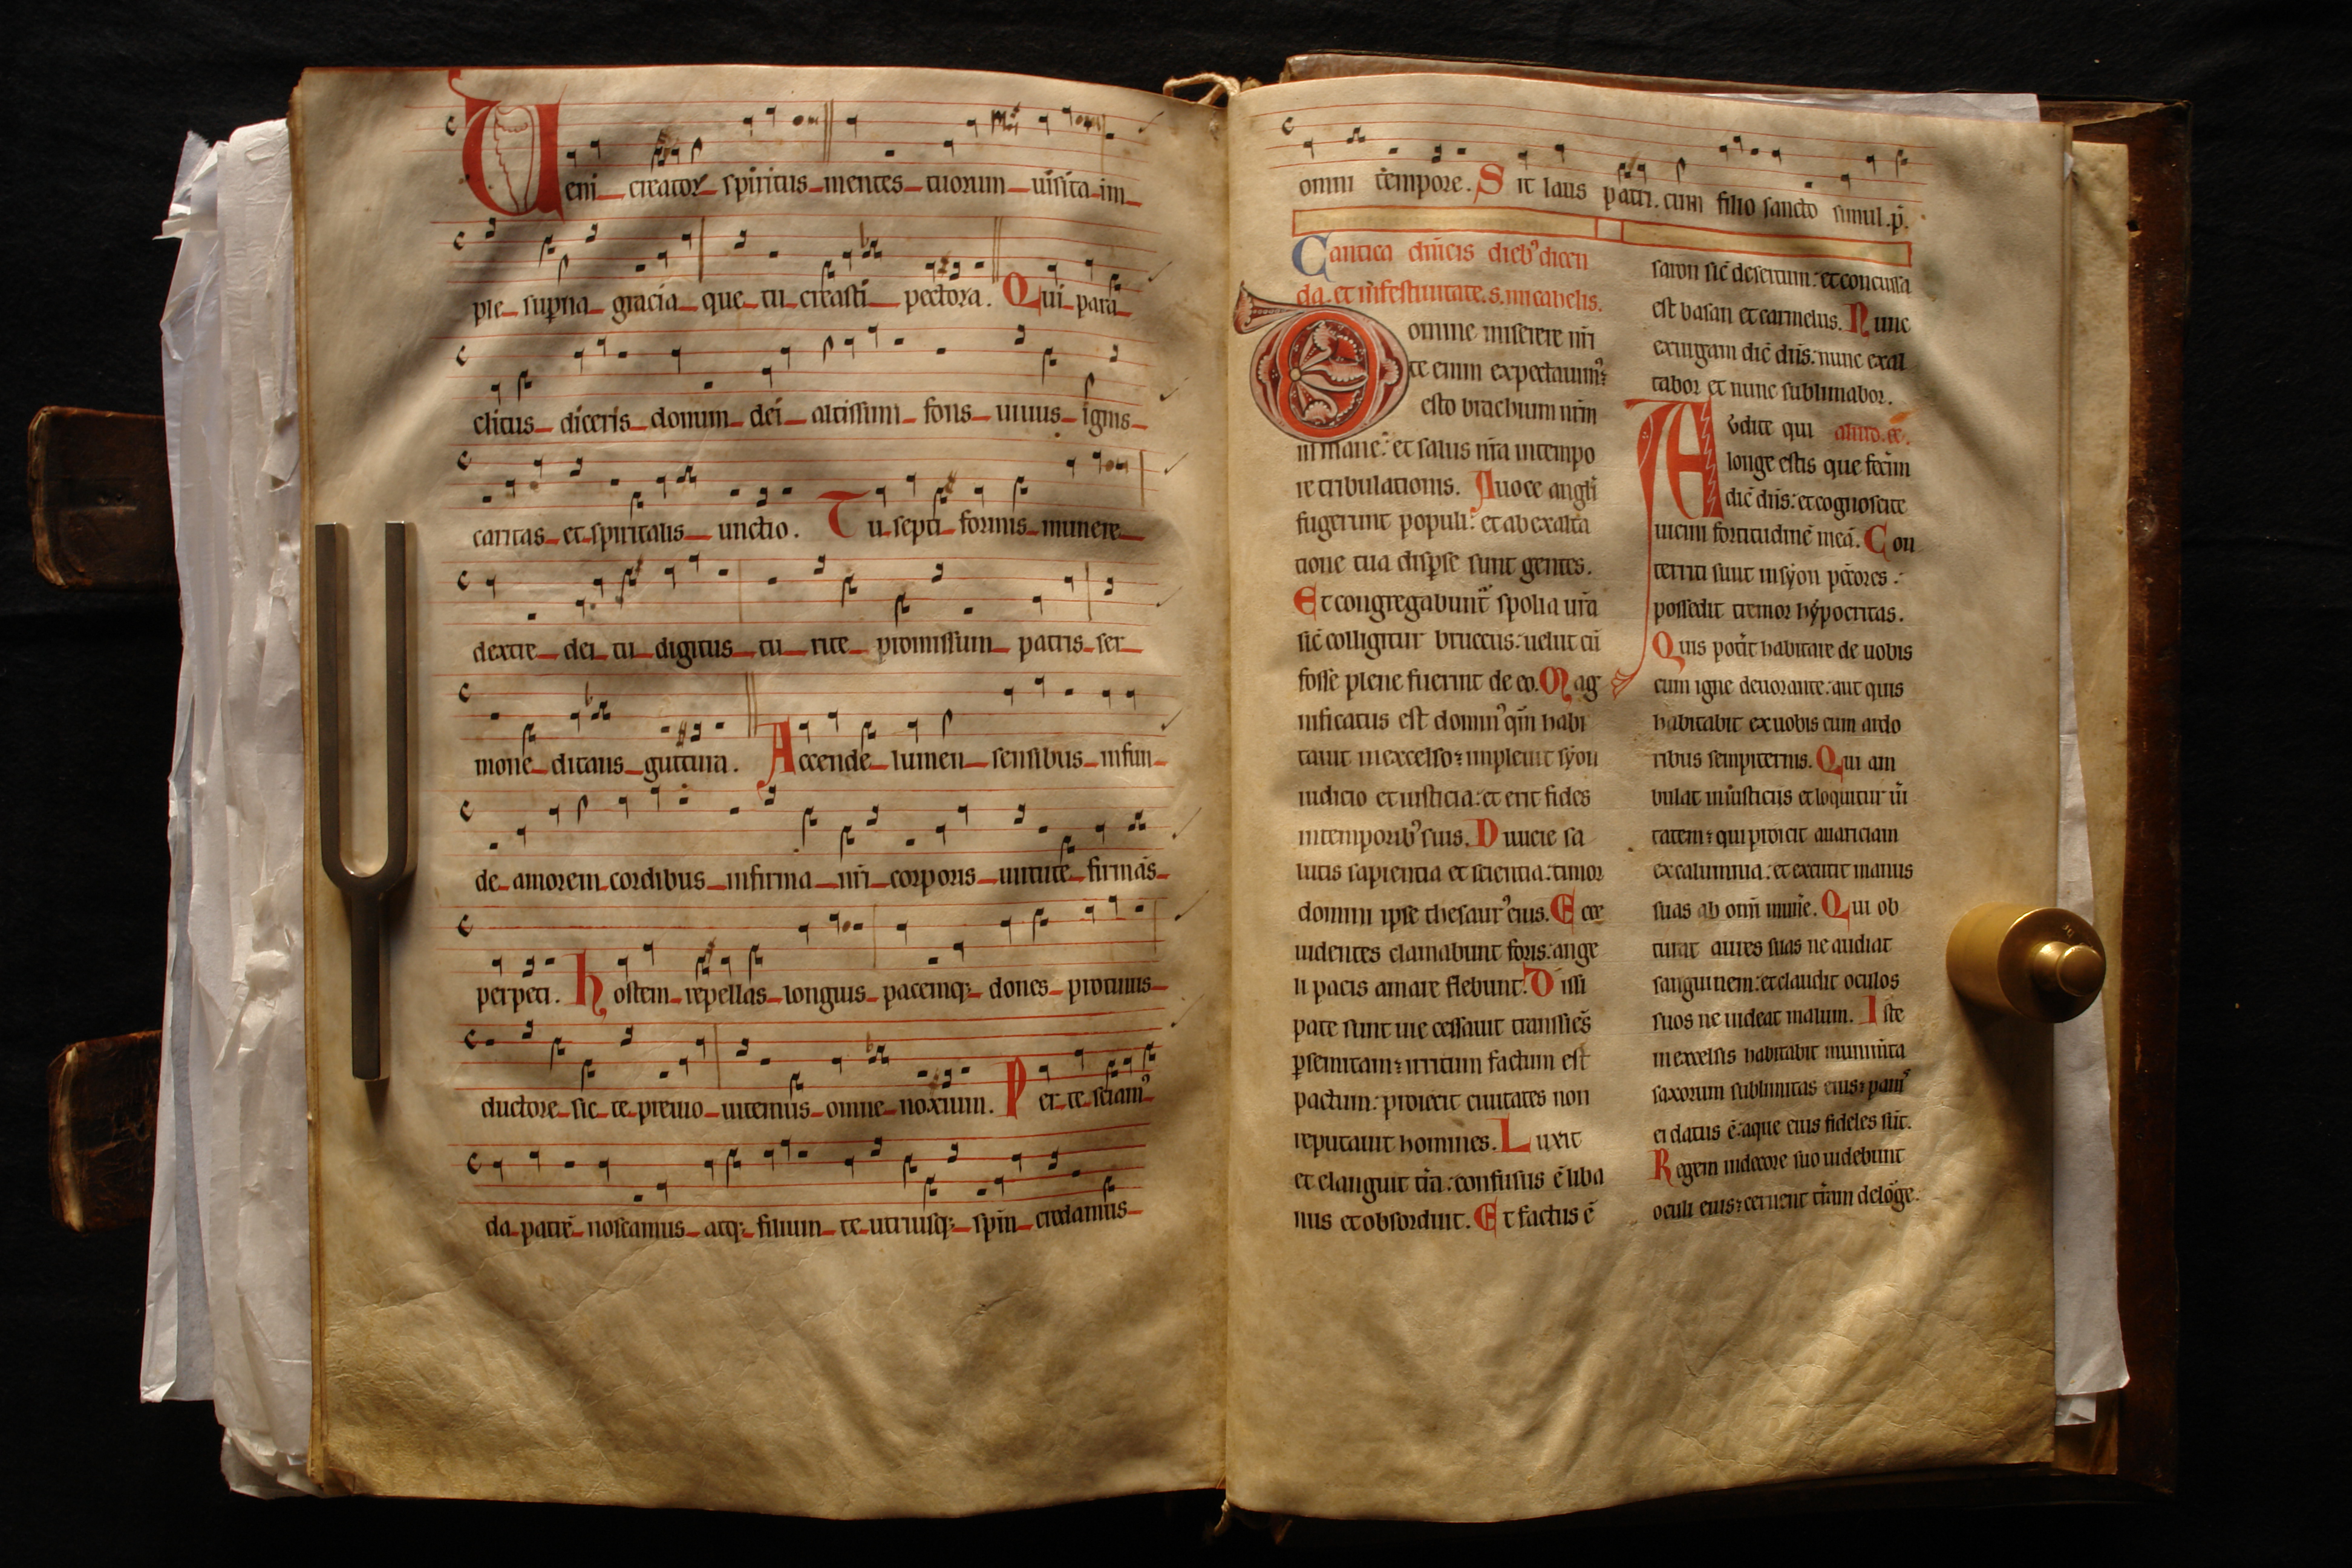 Veni creator spiritus mentes tuorum uisita im
ple sup̄na gracia que tu creasti pectora. Qui para
clitus diceris donum dei altissimi fons uiuus ignis
caritas et spiritalis unctio. Tu septi formis munere
dextre dei tu digitus tu rite promissum patris ser
mone ditans guttura. Accende lumen sensibus infun
de amorem cordibus infirma nr̄i corporis uirtute firmās
perpeti. Hostem repellas longius pacemq; dones protinus
ductore sic te preuio uitemus omne noxium. Per te sciam᾽
da patrē noscamus atq; filium te utriusq; spm̄ credamus
omni tempore. Sit laus patri cum filio sancto simul .p̄.
Cantica dn̄icis dieb᾽ dicen
da. et in festiuitate .s. micahelis.
Domine miserere nr̄i
te enim expectauim᾽:
esto brachium nr̄m
in mane: et salus nr̄a in tempo
re tribulationis. A uoce angl̄i
fugerunt populi: et ab exalta
tione tua disp̱se sunt gentes.
Et congregabunt᾽ spolia ur̄a
sic̄ colligitur bruccus: uelut cū
fosse plene fuerint de eo. Mag
nificatus est domin᾽ qm̄ habi
tauit in excelso: impleuit syon
iudicio et iusticia: et erit fides
in temporib᾽ suis. Diuicie sa
lutis sapientia et scientia: timor
domini ipse thesaur᾽ eius. Ecce
uidentes clamabunt foris: ange
li pacis amare flebunt. Dissi
pate sunt uie cessauit transiēs
p̱ semitam: irritum factum est
pactum: proiecit ciuitates non
reputauit homines. Luxit
et elanguit tr̄a: confusus ē liba
nus et obsorduit. Et factus ē
saron sic̄ desertum: et concussa
est basan et carmelus. Nunc
exurgam dic̄ dn̄s: nunc exal
tabor et nunc sublimabor.
Audite qui
longe estis que fecerim
dic̄ dn̄s: et cognoscite
uicini fortitudinē meā. Con
territi sunt in syon pc̄cores:
possedit tremor hypocritas.
Quis pot̄it habitare de uobis
cum igne deuorante: aut quis
habitabit ex uobis cum ardo
ribus sempiternis. Qui am
bulat in iusticiis et loquitur ū̄i
tatem: qui proicit auariciam
ex calumnia: et excutit manus
suas ab om̄i mun̄e. Qui ob
turat aures suas ne audiat
sanguinem: et claudit oculos
suos ne uideat malum. Iste
in excelsis habitabit munim̄ta
saxorum sublimitas eius: panis
ei datus ē: aque eius fideles sūt.
Regem in decore suo uidebunt
oculi eius: cernent tr̄am de lōge.